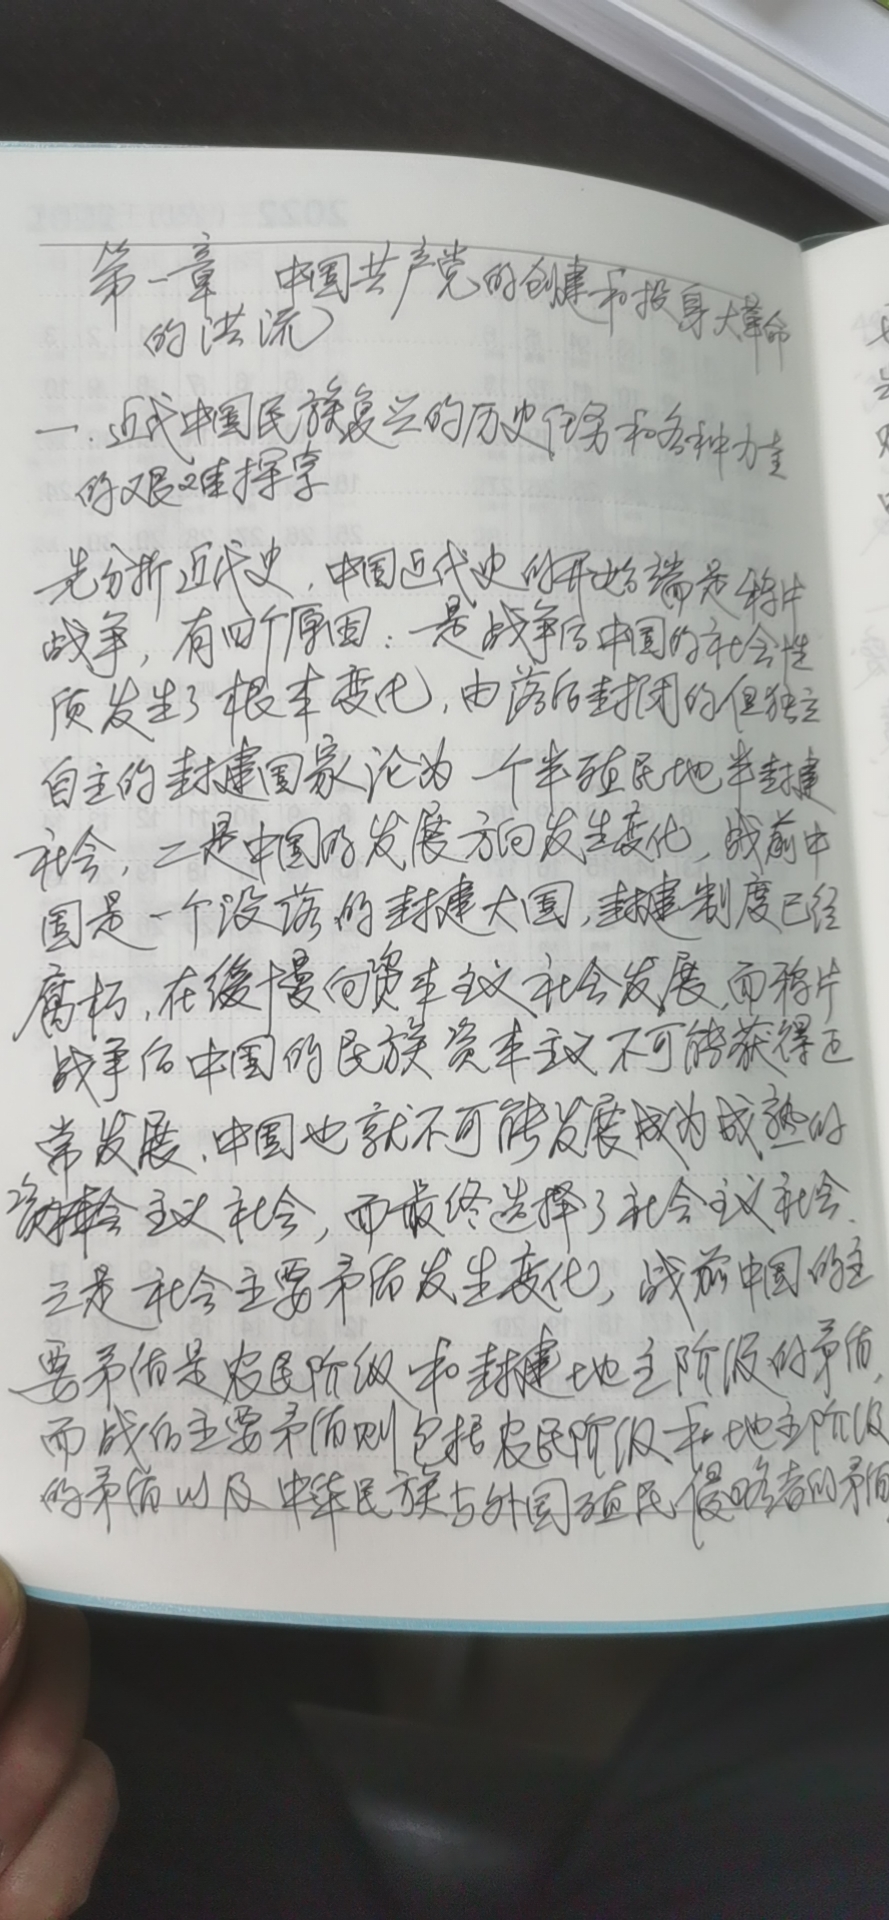 第一章 中国共产党的创建和投身大革命
的洪流
一.近代中国民族复兴的历史任务和各种力量
的艰难探索
先分析近代史,中国近代史的开始端是鸦片
战争,有四个原因:一是战争后中国的社会性
质发生了根本变化,由落后封闭的但独立
自主的封建国家沦为一个半殖民地半封建
社会,二是中国的发展方向发生变化,战前中
国是一个没落的封建大国,封建制度已经
腐朽,在缓慢向资本主义社会发展,而鸦片
战争后中国的民族资本主义不可能获得正
常发展、中国也就不可能发展成为成熟的
主义社会,而最终选择了社会主义社会、
三是社会主要矛盾发生变化,战前中国的主
要矛盾是农民阶级和封建地主阶级的矛盾,
而战后主要矛盾则包括农民阶级和地主阶级
的矛盾以及中华民族与外国殖民侵略者的矛盾,
2022